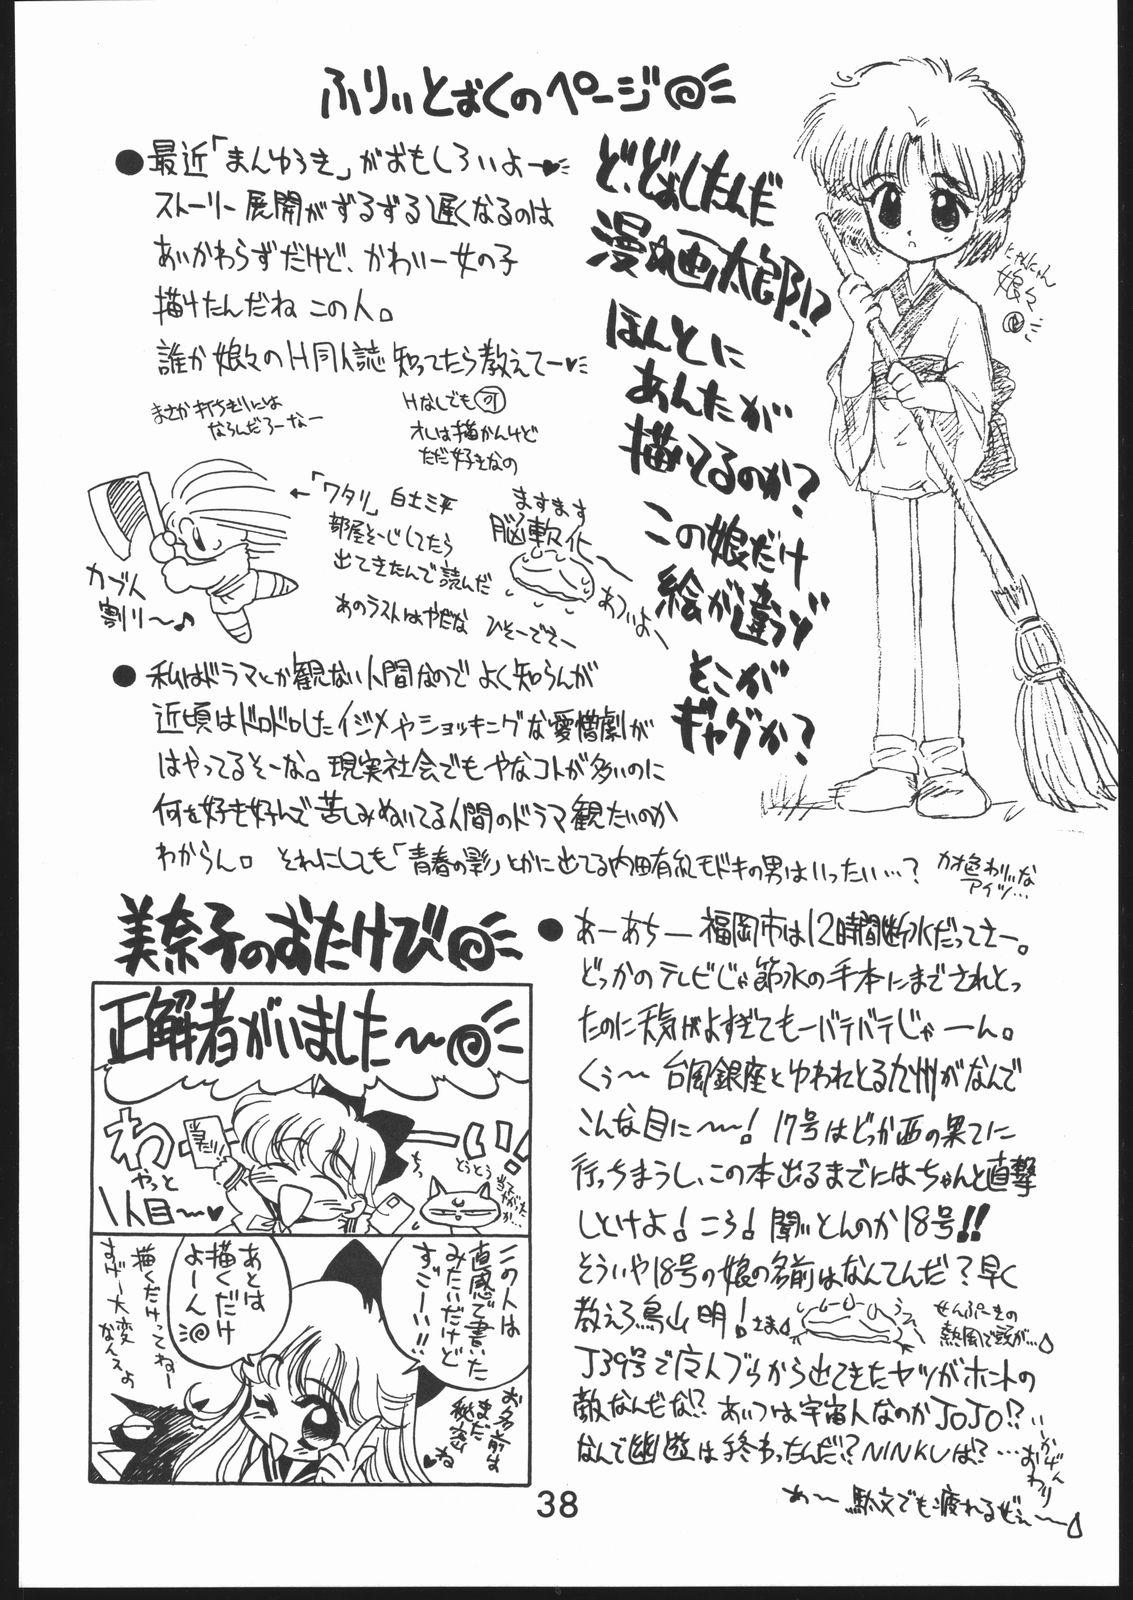 ふりぃとばくのページ
●最近「まんゆうき」がおもしろいよー♥
ストーリー展開がずるずる遅くなるのは
あいかわらずだけど、かわいー女の子
描けたんだね この人。
誰か娘々のH同人誌知ってたら教えてー♥
まさか打ちぎりには
ならんだろーなー
Hなしでも可
オレは描かんけど
ただ好きなの
ど、どおしたんだ
漫☆画太郎!?
ほんとに
あんたが
描いてるのか?
この娘だけ
絵が違うゾ
どこが
ギャグか?
にゃんにゃん
娘々
←「ワタリ」白土三平
部屋そーじしてたら
出てきたんで読んだ
あのラストはやだな ひそーでさー
カブト
割り〜♪
ますます
脳軟化
あついよー
●私はドラマとか観ない人間なのでよく知らんが
近頃はドロドロしたイジメやショッキングな愛憎劇が
はやってるそーな。現実社会でもやなコトが多いのに
何を好き好んで苦しみぬいてる人間のドラマ観たいのか
わからん。それにしても「青春の影」とかに出てる内田有紀モドキの男はいったい…?
カオ色わりぃな
アイツ…
美奈子のおたけび
正解者がいました〜
わーい!
やっと
1人目〜♥
とうとう
当てやがったか…
この人は
直感で書いた
みたいだけど
すごーい!!
お名前は
まだ
秘密
ね♥
あとは
描くだけ
よーん
描くだけってねー
すげー大変
なんスよ
●あーあちー 福岡市は12時間断水だってさー。
どっかのテレビじゃ節水の手本にまでされとっ
たのに天気がよすぎてもーバテバテじゃーん。
くぅ〜 台風銀座とゆわれとる九州がなんで
こんな目に〜〜! 17号はどっか西の果てに
行っちまうし、この本出るまでにはちゃんと直撃
しとけよ!ころ!聞いとんのか18号!!
そういや18号の娘の名前はなんてんだ?早く
教えろ鳥山明!さま
せんぷーきの
熱風で頭が…
J39号で広人ブゥから出てきたヤツがホントの
敵なんだな!? あいつは宇宙人なのかJOJO!?
なんで幽遊は終わったんだ!? NINKUは?…
いかげん
おわり
あ〜 駄文でも疲れるぜぇ〜〜
38